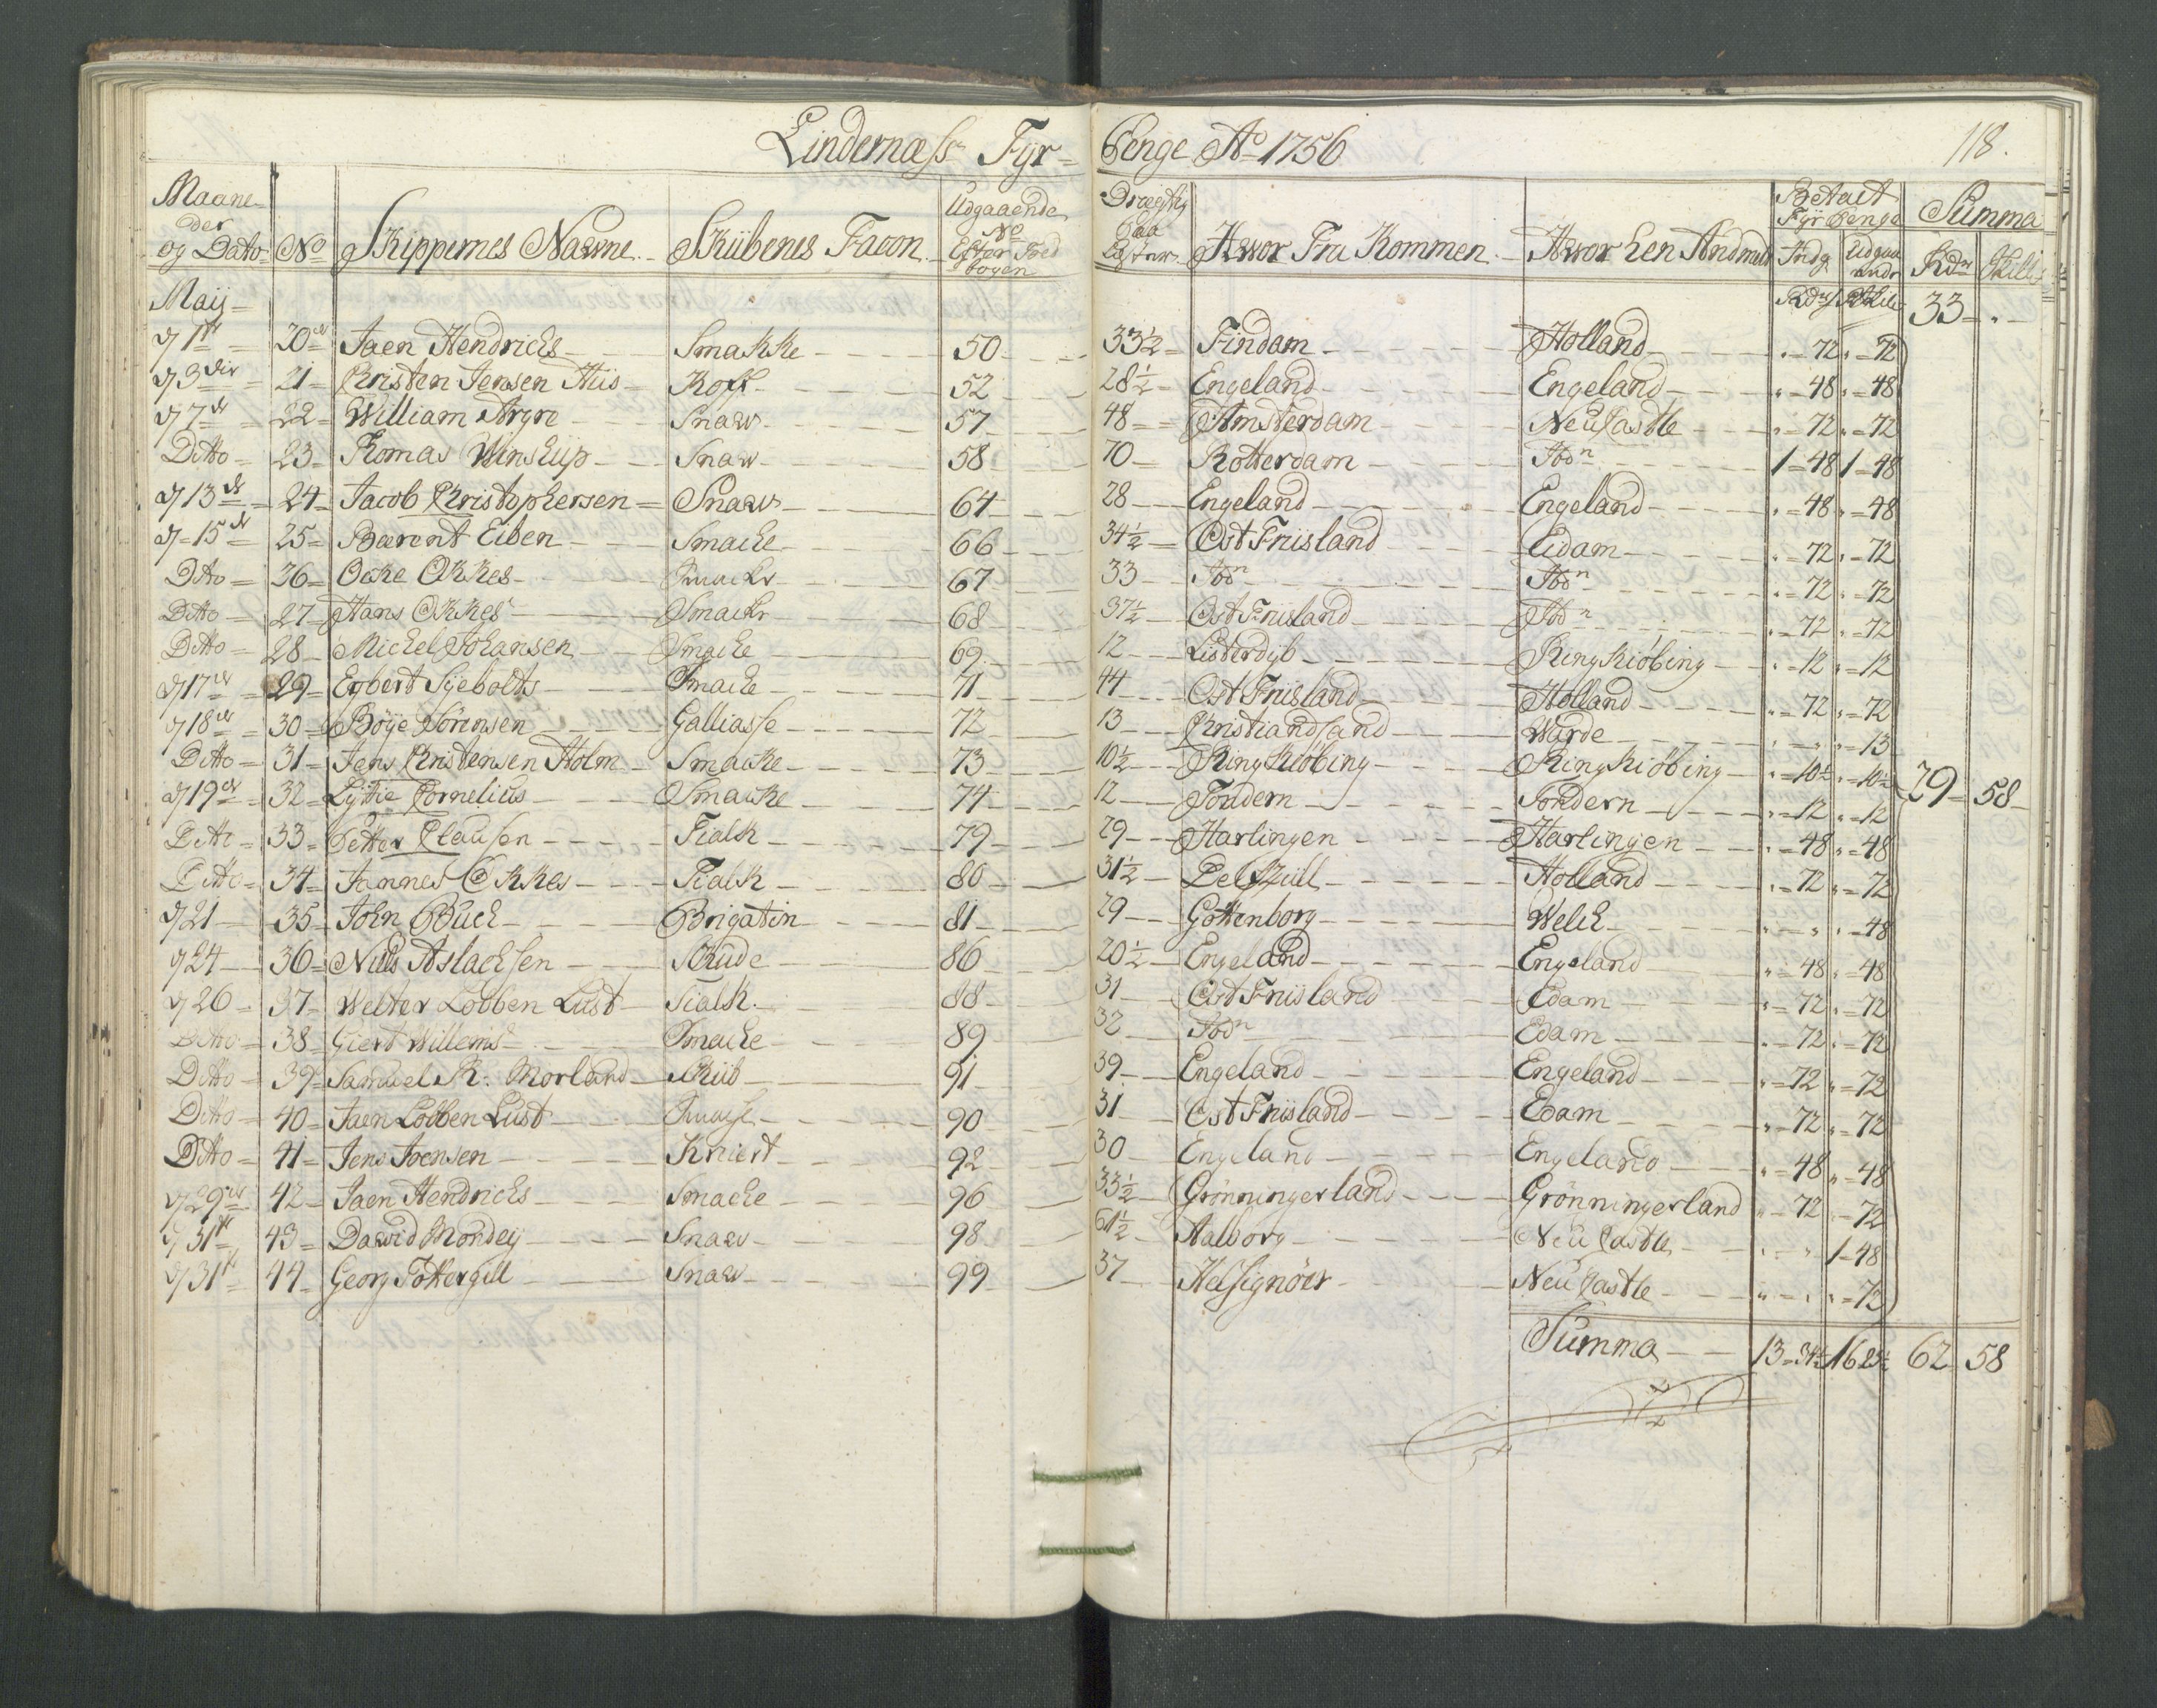 Lindernæss Fyr= Penge Ao 1756
118.
Maane-
der
og Dato No Skippernes Nawne. Skiibenes Facon Udgaaende No Efter Toldbogen Drægtig Paa Læster Hwor Fra Kommen Hwor Hen Andmeldt Betalt Fyr Penge Indg. Udgaaende Summa Rdr Skill
Maij Rdr Skill 33 - "
d 1te 20de Jaen Hendrichs Smakke 50 33½ Tindam Holland " 72 " 72
d 3die 21 Christen Jensen Hiis Koff 52 28½ Engeland Engeland " 48 " 48
d 7de 22 William Argre Snaw 57 48 Amsterdam NeuCastle " 72 " 72
Ditto 23 Thomas Winship Snaw 58 70 Rotterdam Ibdn 1 48 1 48
d 13de 24 Jacob Christophersen Snaw 64 28 Engeland Engeland " 48 " 48
d 15de 25 Bærent Eiben Smacke 66 34½ Ost Friisland Eidam " 72 " 72
Dito 26 Ocke Okkes Smacke 67 33 Ibdn Ibdn " 72 " 72
Ditto 27 Hans Okkes Smacke 68 37½ Ost Friisland Ibdn " 72 " 72
Ditto 28 Michel Johansen Smacke 69 12 Listerdyb Ring Kiöbing " 12 " 12
d 17de 29 Egbert Sijebolts Smacke 71 44 Ost Friisland Holland " 72 " 72
d 18de 30 Böije Sörensen Galliasse 72 13 Christiandsand Warde " " " 13
Ditto 31 Jens Christensen Holm Smacke 73 10½ Ring Kiöbing Ring Kiöbing " 10½ " 10½
d 19de 32 Lijttie Cornelius Smacke 74 12 Tondern Tondern " 12 " 12 29 58
Ditto 33 Petter Clausen Tialk 79 29 Harlingen Harlingen " 48 " 48
Ditto 34 Jannes Okkes Tialk 80 31½ Delfziill Holland " 72 " 72
d 21 35 John Buch Brigatin 81 29 Gottenborg Welch " " " 48
d 24 36 Niels Aslachsen Skude 86 20½ Engeland Engeland " 48 " 48
d 26 37 Welter Lobben Lust Tialk 88 31 Ost Friisland Edam " 72 " 72
Ditto 38 Giert Willems Smacke 89 32 Ibdn Edam " 72 " 72
Ditto 39 Samuel R. Morland Skiib 91 39 Engeland Engeland " 72 " 72
Ditto 40 Jaen Lobben Lust 90 31 Ost Friisland Edam " 72 " 72
Ditto 41 Jens Joensen Kreiert 92 30 Engeland Engeland " 48 " 48
d 29de 42 Jaen Hendrichs Smacke 96 33½ Grönningerland Grönningerland " 72 " 72
d 31te 43 Dawid Mondey Snaw 98 61½ Aalborg Neu Castle " " 1 48
d 31te 44 Georg Tottergill Snaw 99 37 Helsignöer Neu Castle " " " 72
Summa 13 34½ 16 23½ 62 58